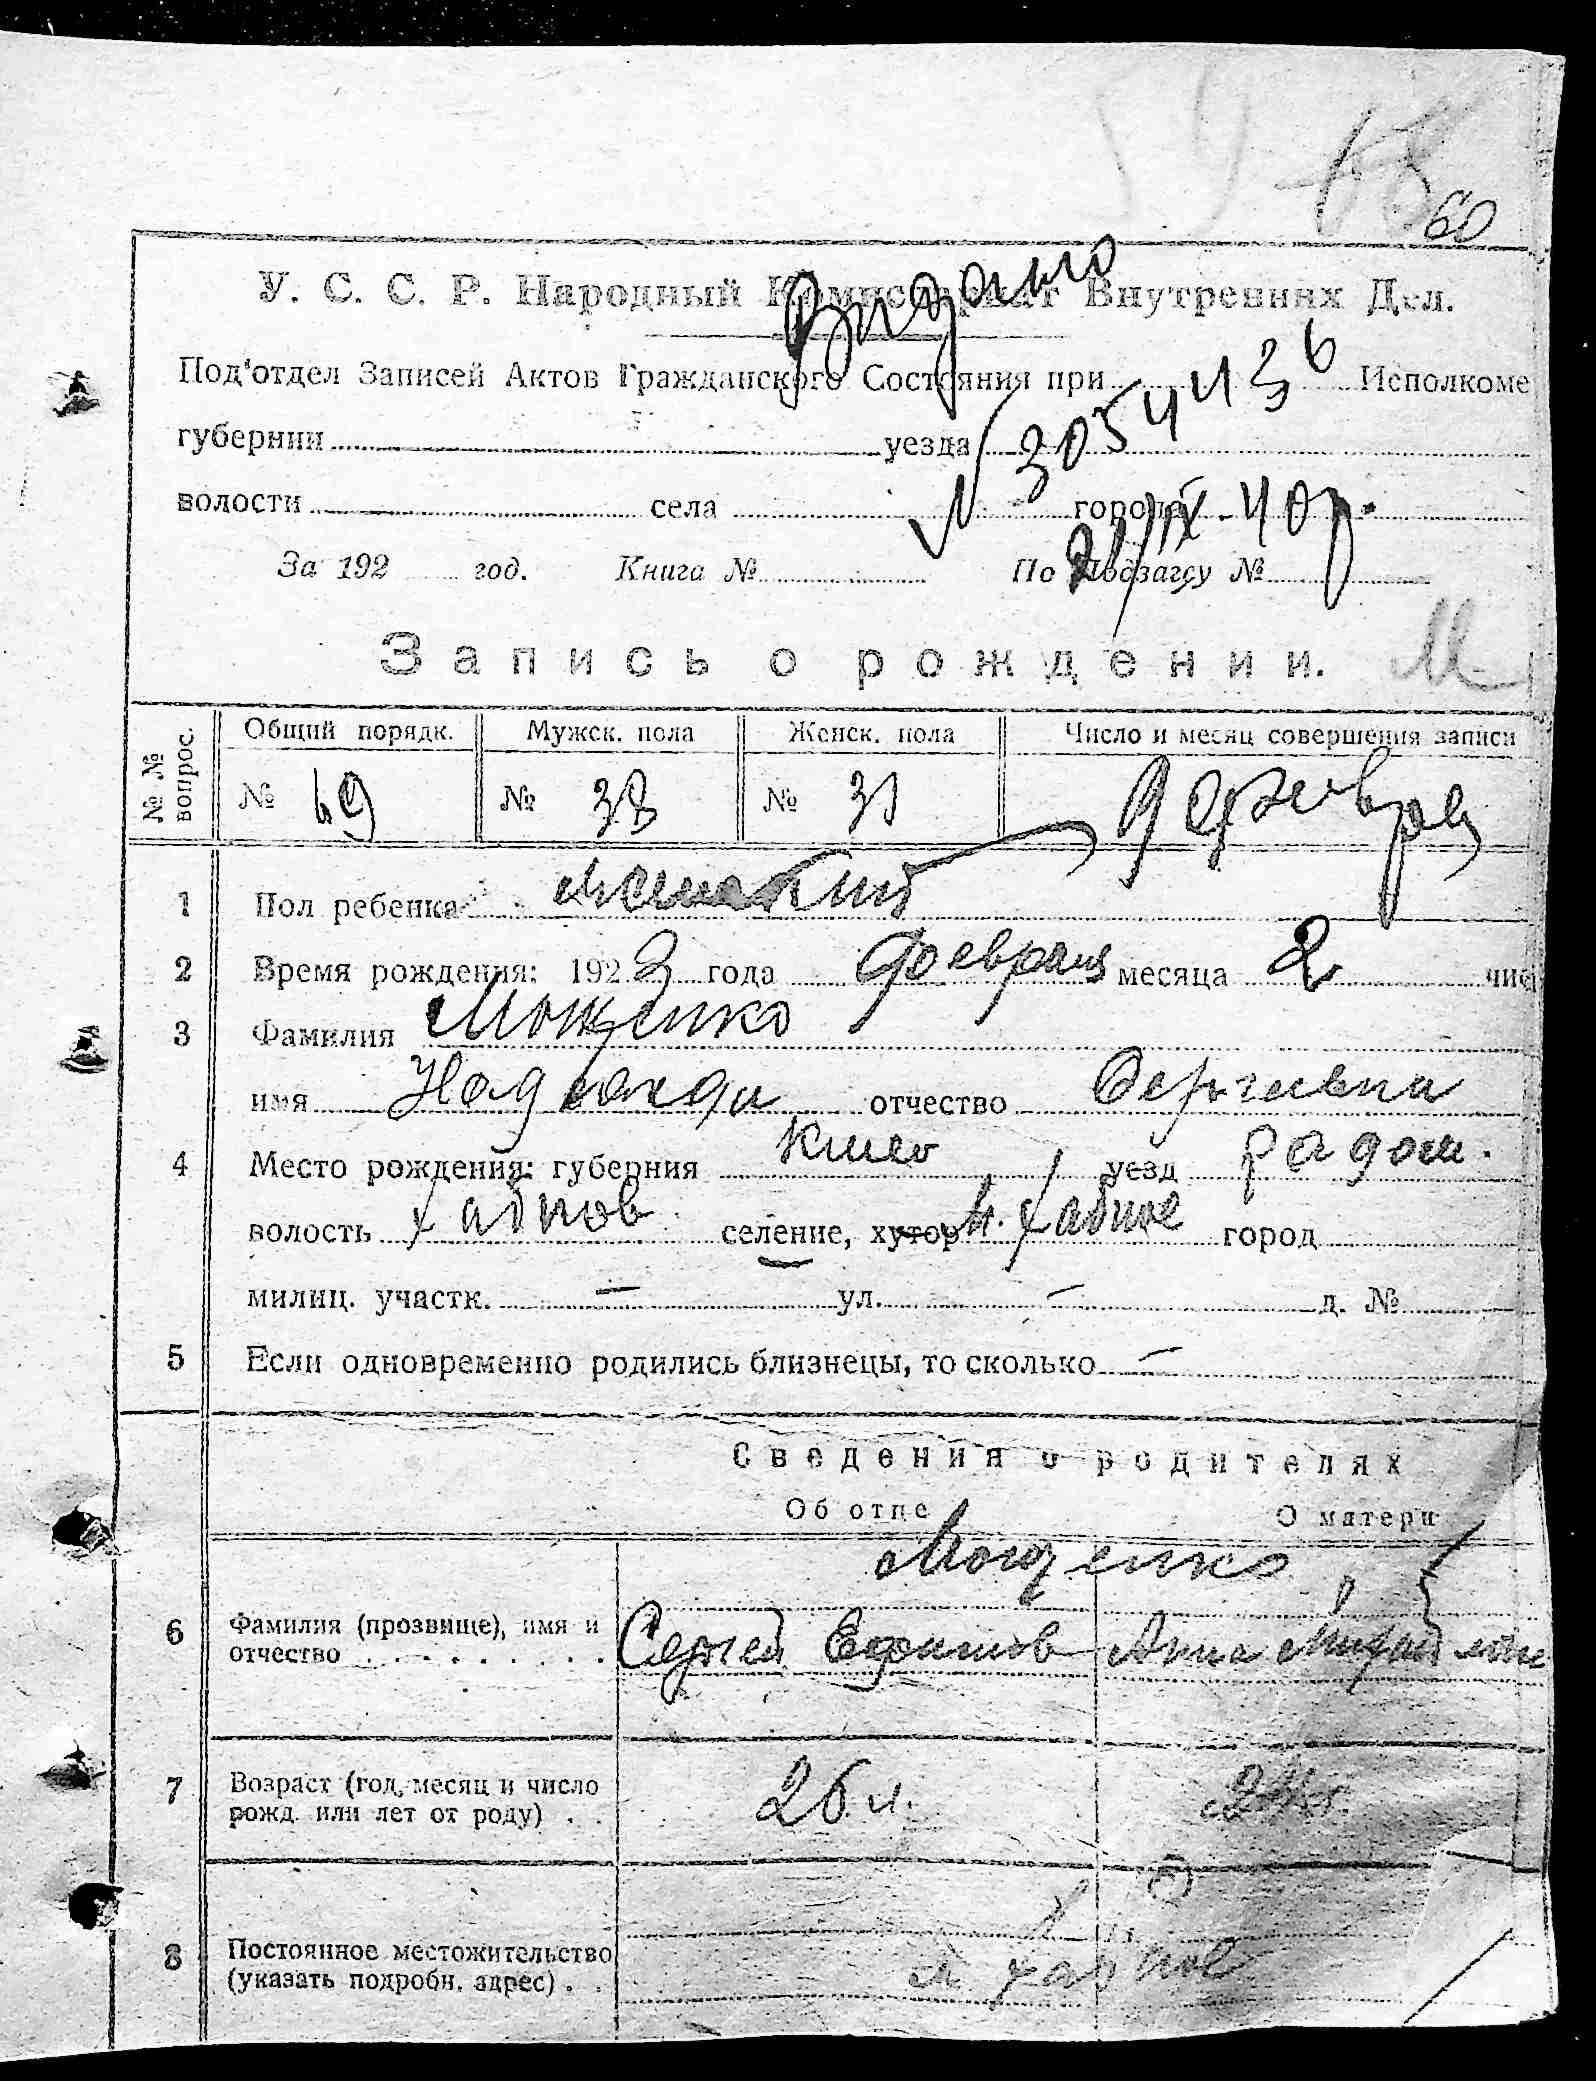 60
У. С. С. Р. Народный Комиссариат Внутренних Дел.
Видано
Под'отдел Записей Актов Гражданского Состояния при Исполкоме
№ 3054436
губернии уезда
волости села города
21/IX-40р.
За 192 год. Книга № По Подзагсу №
Запись о рождении.
М
№ № вопрос. Общий порядк. Мужск. пола Женск. пола Число и месяц совершения записи
№ 69 № 38 № 31 9 февраля
1 Пол ребенка женский
2 Время рождения: 1923 года февраля месяца 2 чис
3 Фамилия Мощенко
имя Надежда отчество Сергиевна
4 Место рождения: губерния Киев уезд Радом.
волость Хабнов селение, хутор м. Хабное город
милиц. участк. — ул. — д. №
5 Если одновременно родились близнецы, то сколько —
Сведения о родителях
Об отце О матери
Мощенко
6 Фамилия (прозвище), имя и отчество Сергей Ефимов Анна Михайловн
7 Возраст (год, месяц и число рожд. или лет от роду) 26 л. 24 г.
8 Постоянное местожительство (указать подробн. адрес) м Хабное